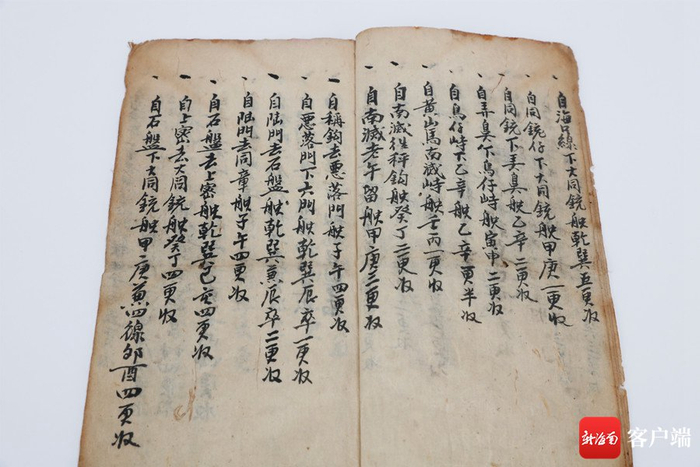 自海口線下大同銃舦乾巽五更收
自同銃仔下大同銃舦甲庚一更收
自同銃下弄鼻舦乙辛二更收
自弄鼻下鳥仔峙舦寅申二更收
自鳥仔峙下乙辛舦乙辛一更半收
自黄山馬南滅峙舦壬丙一更收
自南滅徃秤鈎舦癸丁二更收
自南滅老午留舦甲庚三更收
自稱鈎去悪落門舦子午四更收
自悪落門下六門舦乾巽兼辰戌一更收
自陆門去石盤舦乾巽兼辰戌二更收
自陆門去同章舦子午四更收
自石盤去上密舦乾巽巳亥四更收
自上密去大同銃舦癸丁四更收
自石盤下大同銃舦甲庚兼四線卯酉四更收
新海南 客户端